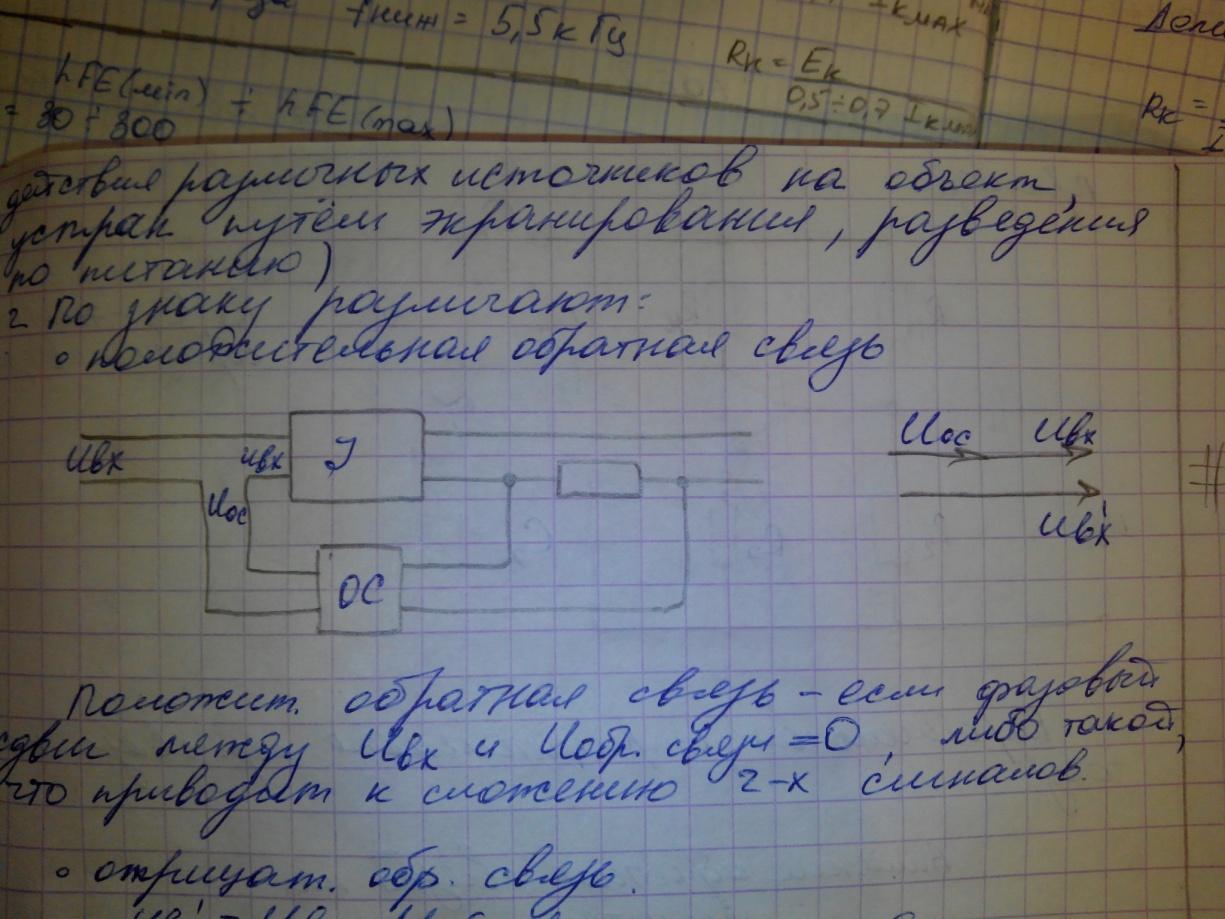 fниж = 5,5 кГц
Iк мах
Rк = Eк / 0,5÷0,7 Iк
hFE(min) ÷ hFE(max)
= 30 ÷ 300
Rк =
действия различных источников на объект,
устран путём экранирования, разведения
по питанию)
2 По знаку различают:
• положительная обратная связь
Uвх
Uвх
У
Uос
ОС
Uос Uвх
Uвх'
Положит. обратная связь – если фазовый
сдвиг между Uвх и Uобр. связи = 0, либо такой,
что приводит к сложению 2-х сигналов.
• отрицат. обр. связь.